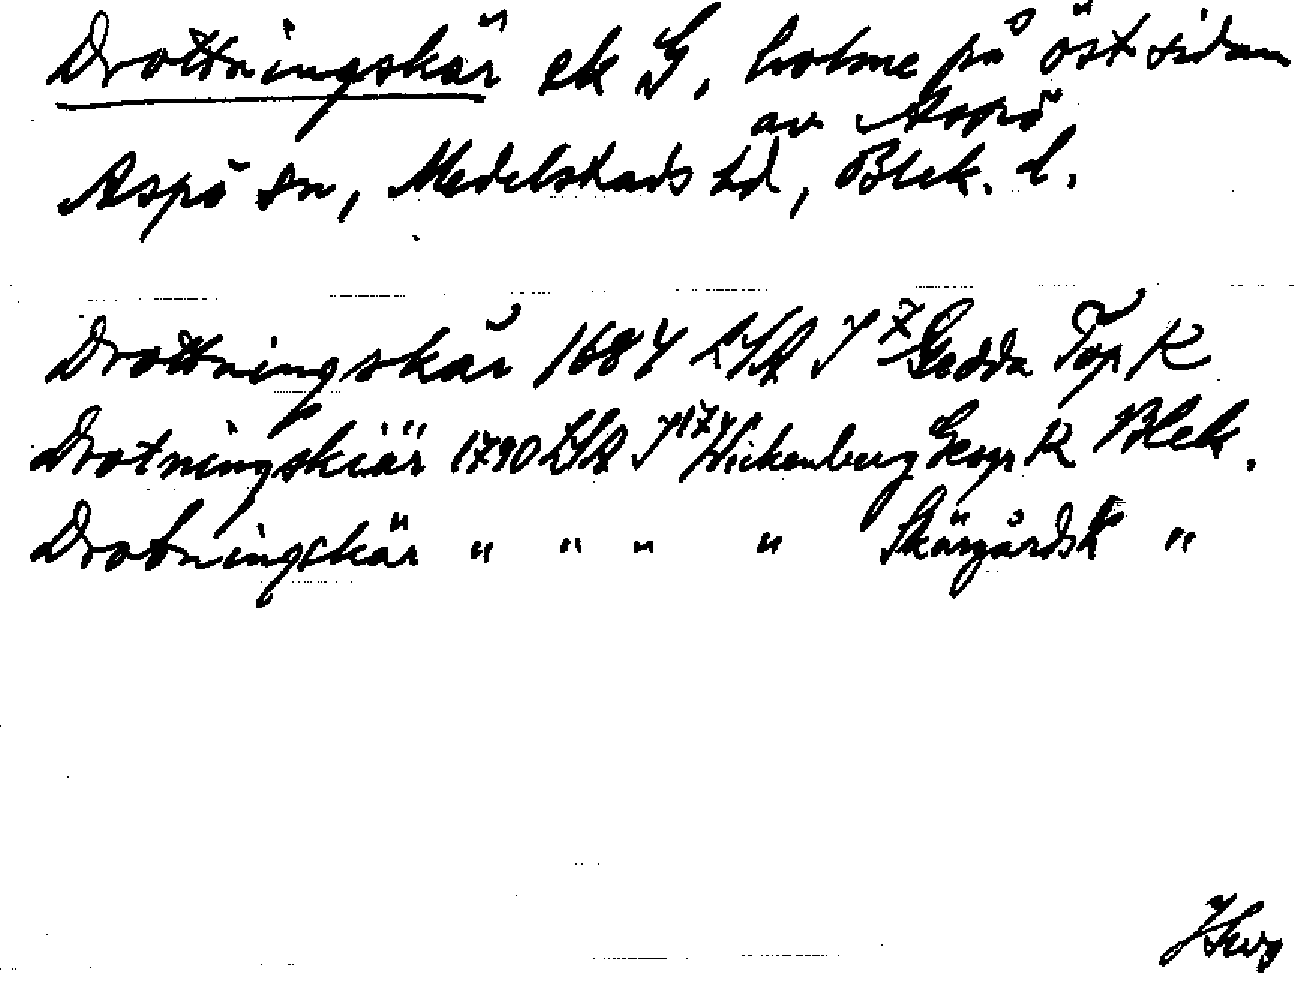 Drottningskär ek G, holme på östsidan
av Aspö
Aspö sn, Medelstads hd, Blek. l.
Drottningskär 1684 LSA J 7 Gedda Top K
Drotningskiär 1790 LSA J 174 Wickenberg Geogr K Blek.
Drotningskär " " " " SkärgårdsK "